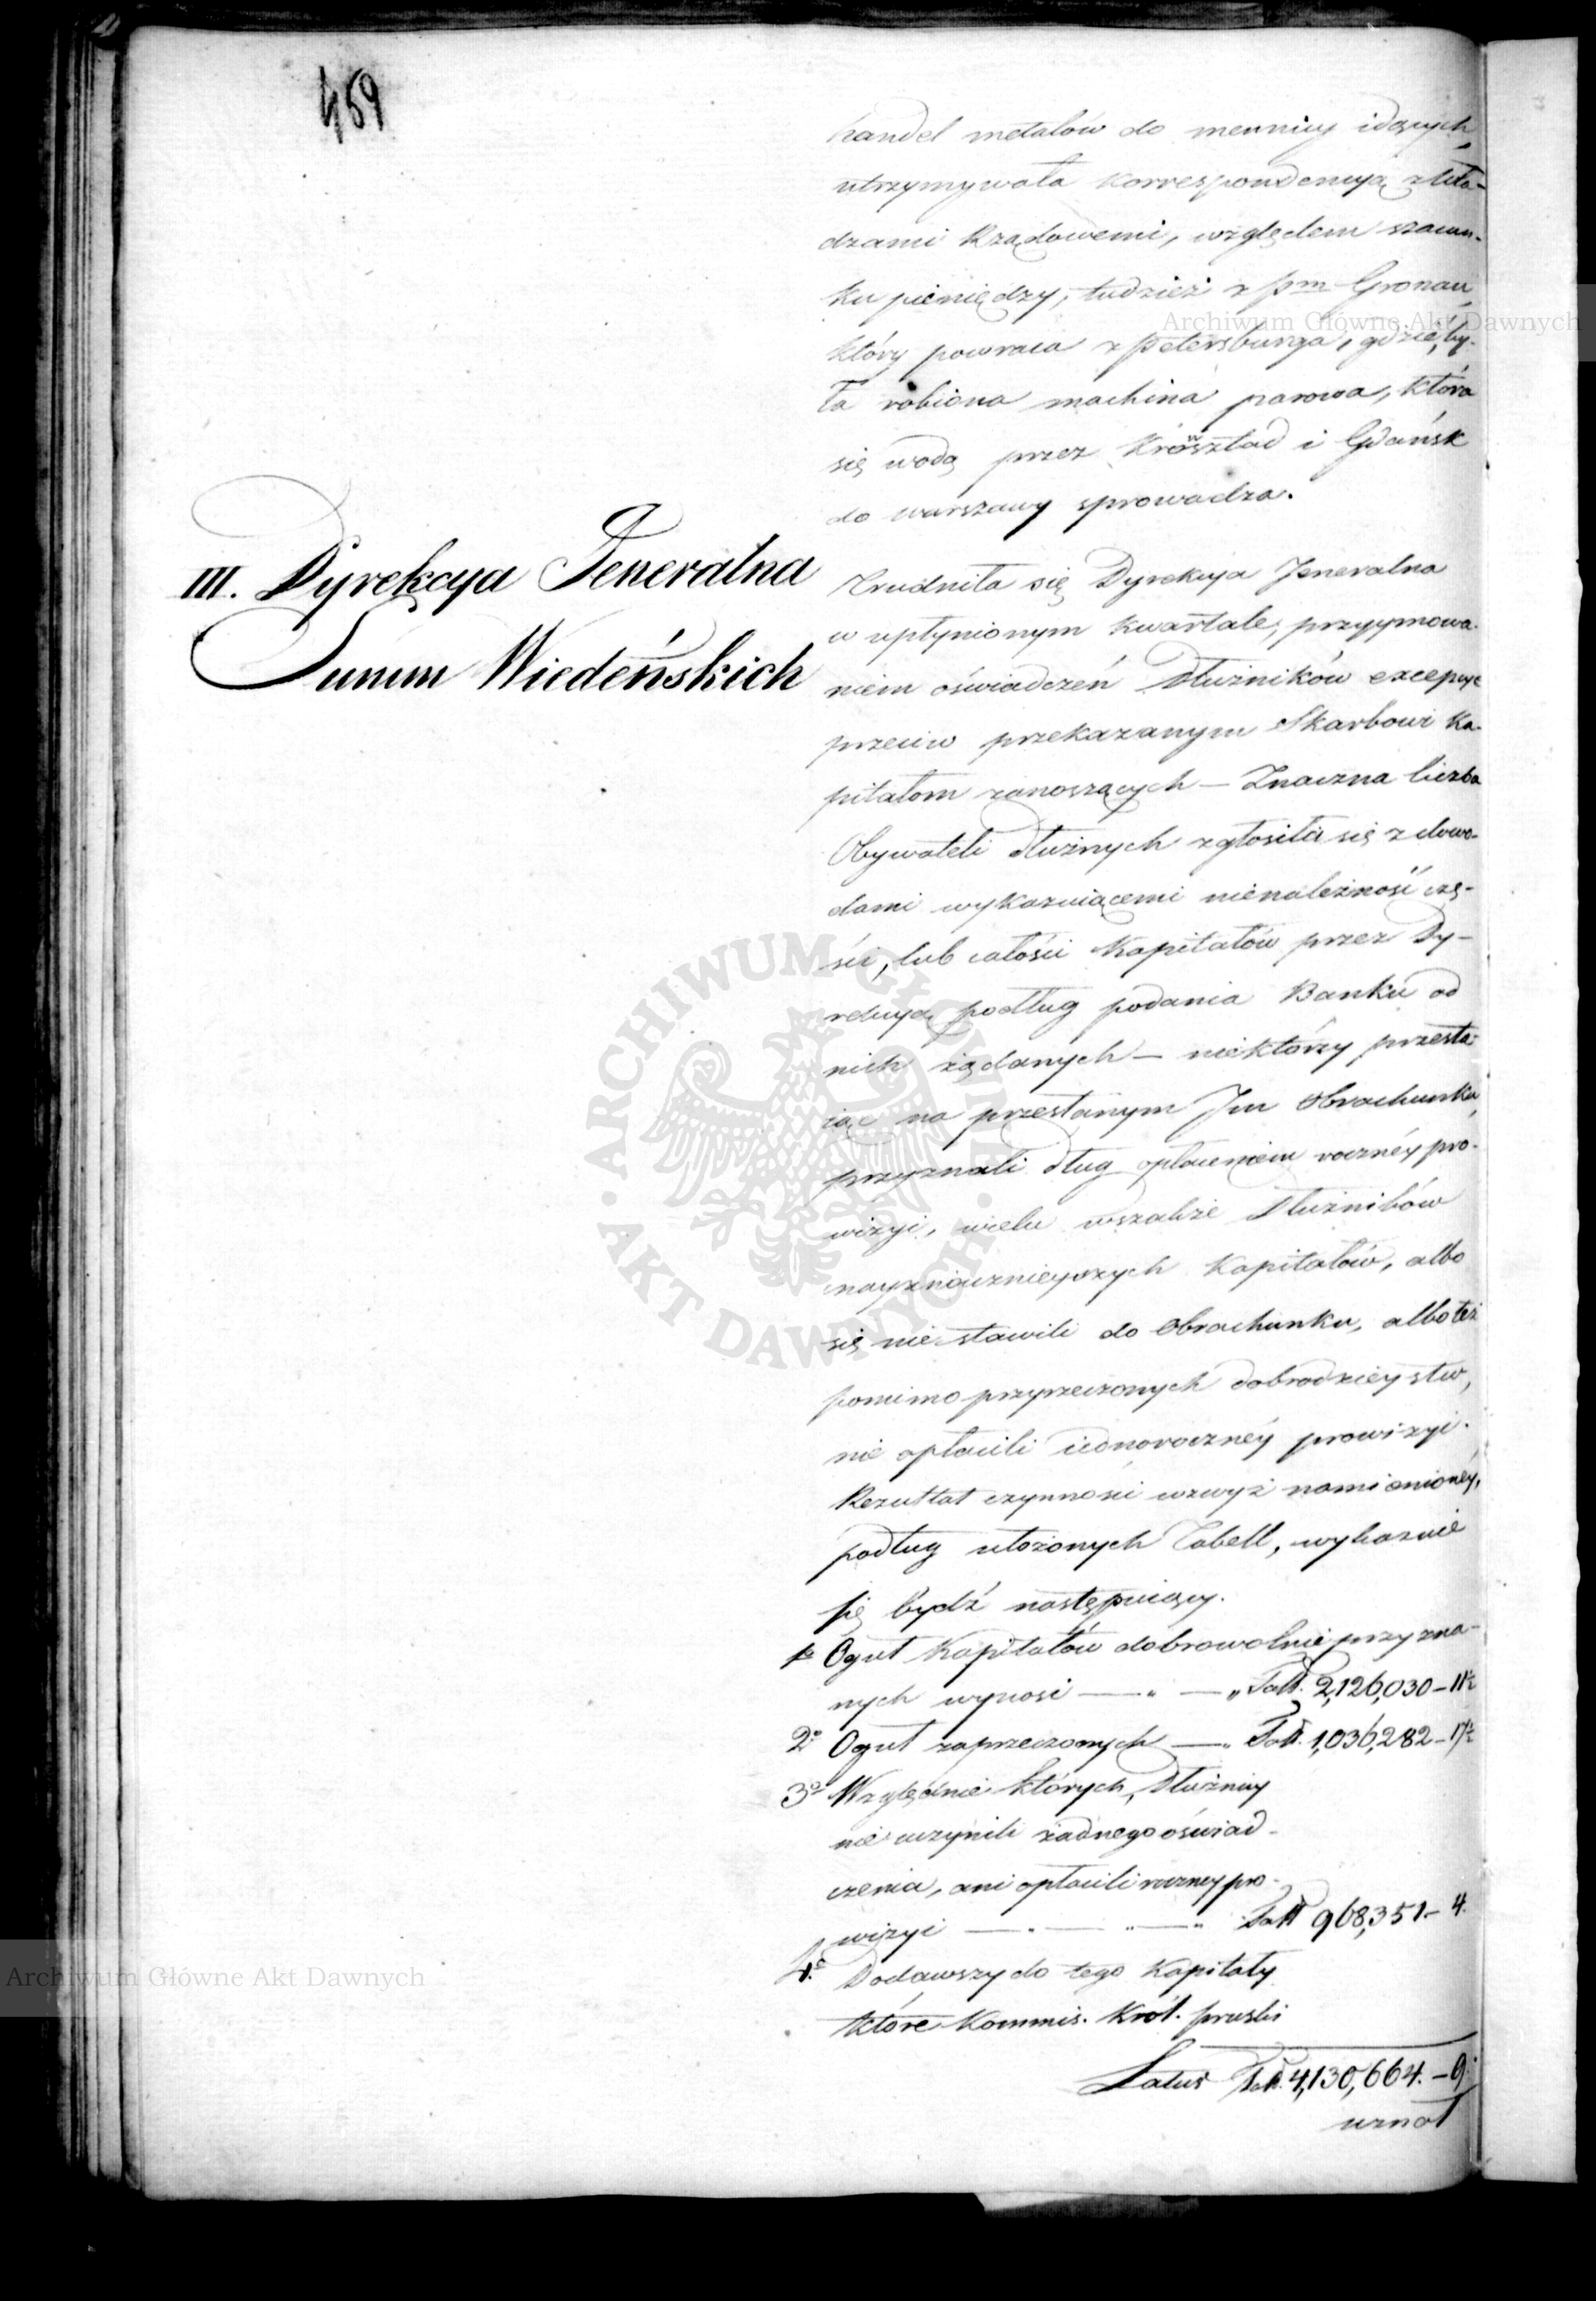 459
handel metalów do mennicy idących,
utrzymywała korrespondencyą z Wła-
dzami Rządowemi, względem szacun-
ku pieniędzy, tudzież z Pm Gronau,
który powraca z Petersburga, gdzie by-
ła robiona machina parowa, która
się wodą przez Kronsztad i Gdańsk
do Warszawy sprowadza.
III. Dyrekcya Jeneralna
Summ Wiedeńskich
Trudniła się Dyrekcya Jeneralna
w upłynionym kwartale, przyymowa-
niem oświadczeń Dłużników excepcye
przeciw przekazanym Skarbowi Ka-
pitałom zanoszących — Znaczna liczba
Obywateli dłużnych zgłosiła się z dowo-
dami wykazuiącemi nienależność czę-
ści, lub całości Kapitałów przez Dy-
rekcyą podług podania Banku od
nich żądanych — niektórzy przesta-
iąc na przesłanym Im Obrachunku,
przyznali dług opłaceniem roczney pro-
wizyi, wielu wszakże Dłużników
nayznacznieyszych Kapitałów, albo
się nie stawili do Obrachunku, albo też
pomimo przyrzeczonych dobrodzieystw,
nie opłacili iednoroczney prowizyi.
Rezultat czynności wzwyż namienioney,
podług ułożonych Tabell, wykazuie
się bydź następuiący.
1o Oguł Kapitałów dobrowolnie przyzna-
nych wynosi — „ — „ Tall. 2,126,030 – 11½
2o Oguł zaprzeczonych — „ Tall. 1,036,282 – 17½
3o Względnie których, Dłużnicy
nie uczynili żadnego oświad-
czenia, ani opłacili roczney pro-
wizyi — „ — „ — „ Tall 968,351 – 4.
4o Dodawszy do tego Kapitały
które Kommis. Król. pruski
Latus Tall. 4,130,664. – 9.
uznał
Archiwum Główne Akt Dawnych
ARCHIWUM GŁÓWNE
AKT DAWNYCH
Archiwum Główne Akt Dawnych